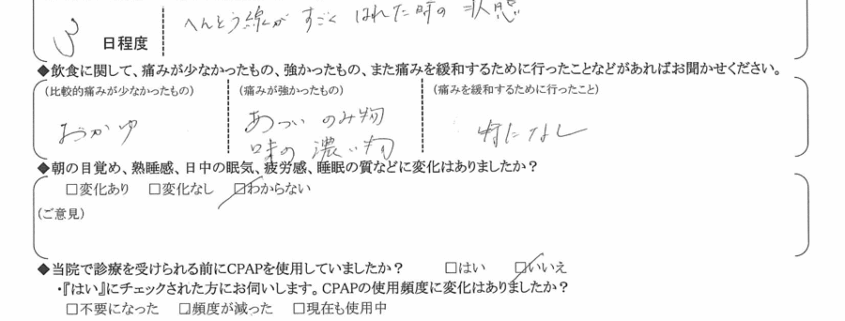 へんとう線がすごくはれた時の状態
3 日程度
◆飲食に関して、痛みが少なかったもの、強かったもの、また痛みを緩和するために行ったことなどがあればお聞かせください。
(比較的痛みが少なかったもの) (痛みが強かったもの) (痛みを緩和するために行ったこと)
おかゆ あついのみ物 特になし
味の濃い物
◆朝の目覚め、熟睡感、日中の眠気、疲労感、睡眠の質などに変化はありましたか？
□変化あり □変化なし ☑わからない
(ご意見)
◆当院で診療を受けられる前にCPAPを使用していましたか？ □はい ☑いいえ
・『はい』にチェックされた方にお伺いします。CPAPの使用頻度に変化はありましたか？
□不要になった □頻度が減った □現在も使用中